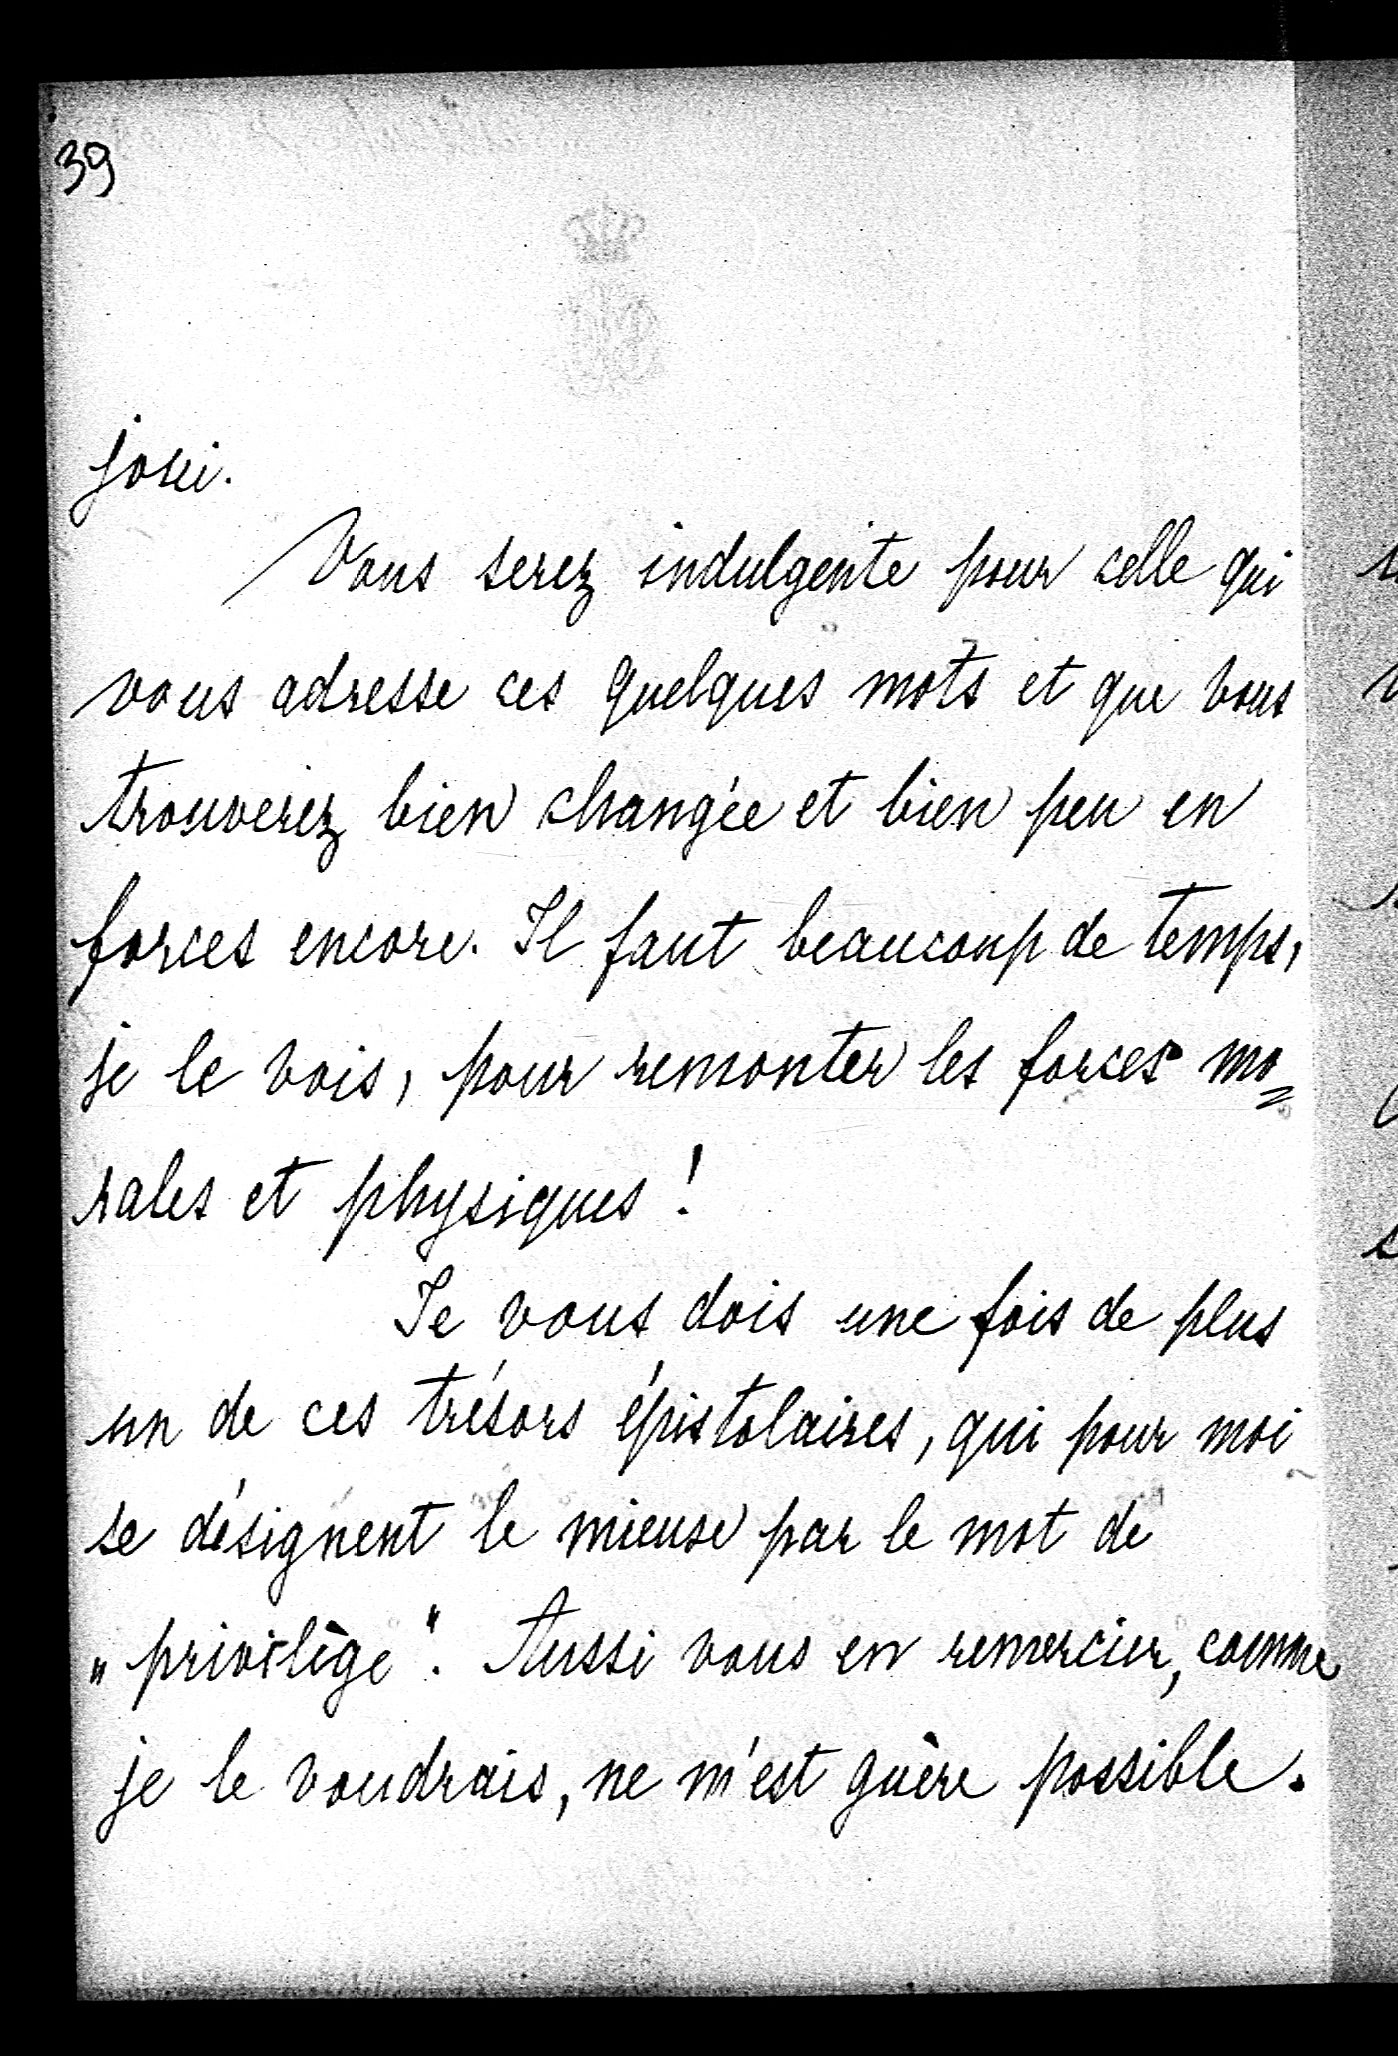 39
joui.
Vous serez indulgente pour celle qui
vous adresse ces quelques mots et que vous
trouverez bien changée et bien peu en
forces encore. Il faut beaucoup de temps,
je le vois, pour remonter les forces mo=
rales et physiques !
Je vous dois une fois de plus
un de ces trésors épistolaires, qui pour moi
se désignent le mieux par le mot de
„privilège“. Aussi vous en remercier, comme
je le voudrais, ne m'est guère possible.